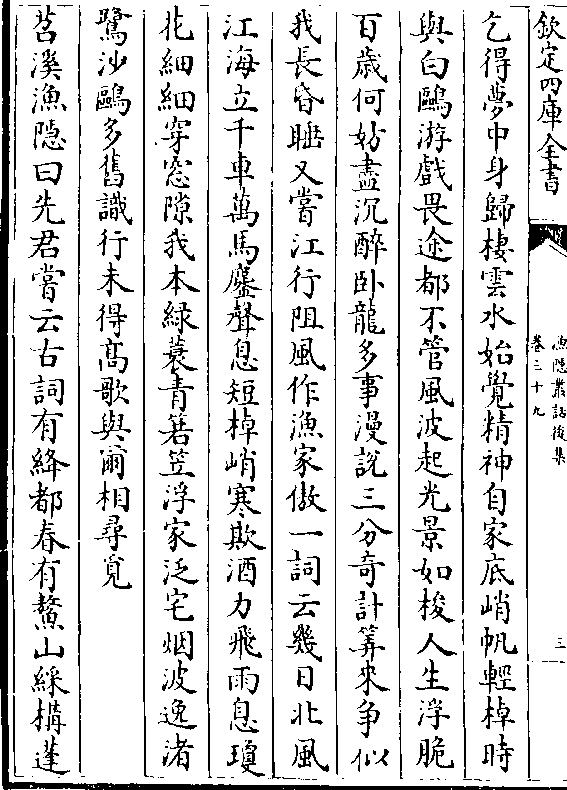 欽定四庫全書
漁隱叢話後集
卷三十九
三
乞得夢中身歸棲雲水始覺精神自家底峭帆輕棹時
與白鷗游戲畏途都不管風波起光景如梭人生浮脆
百歲何妨盡沉醉卧龍多事漫說三分竒計筭來爭似
我長昏睡又嘗江行阻風作漁家傲一詞云幾日北風
江海立千車萬馬鏖聲急短棹峭寒欺酒力飛雨息瓊
花細細穿窓隙我本緑蓑青箬笠浮家泛宅烟波逸渚
鷺沙鷗多舊識行未得髙歌與爾相尋覓
苕溪漁隱曰先君嘗云古詞有絳都春有鰲山綵構蓬